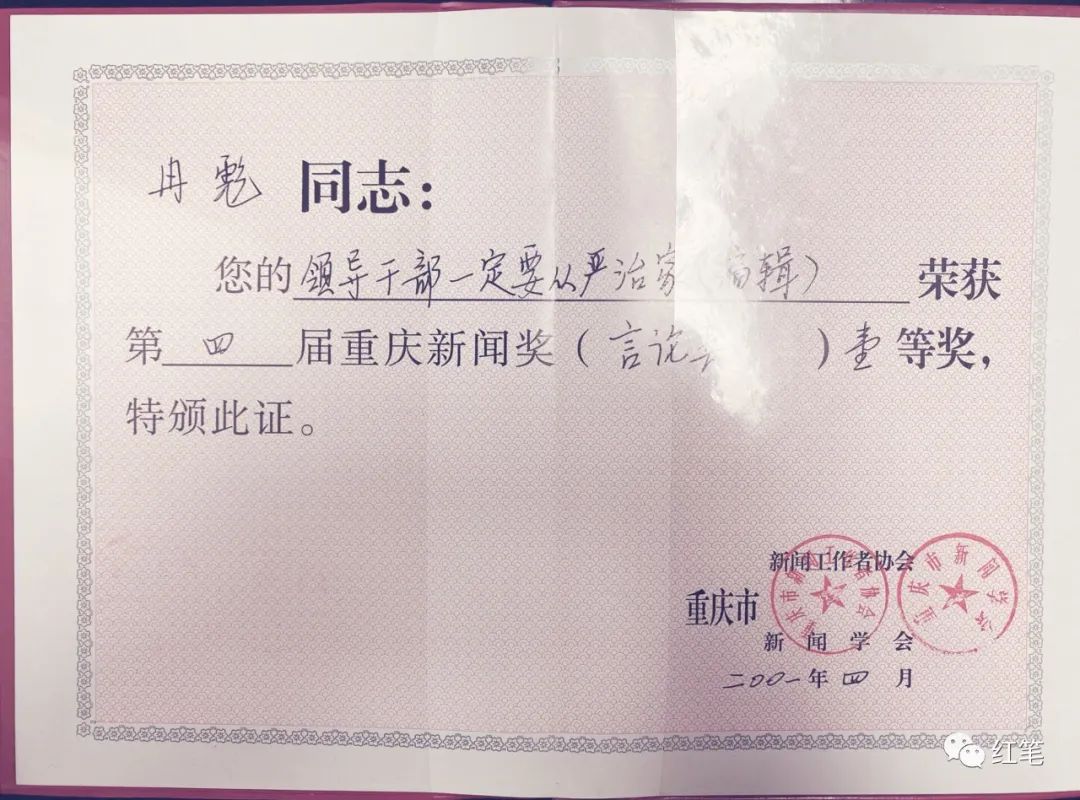 冉彪 同志：
您的领导干部一定要从严治家（编辑）荣获
第四届重庆新闻奖（言论）壹等奖，
特颁此证。
新闻工作者协会
重庆市
新闻学会
二〇〇一年四月
重庆市新闻工作者协会
重庆市新闻学会
红笔